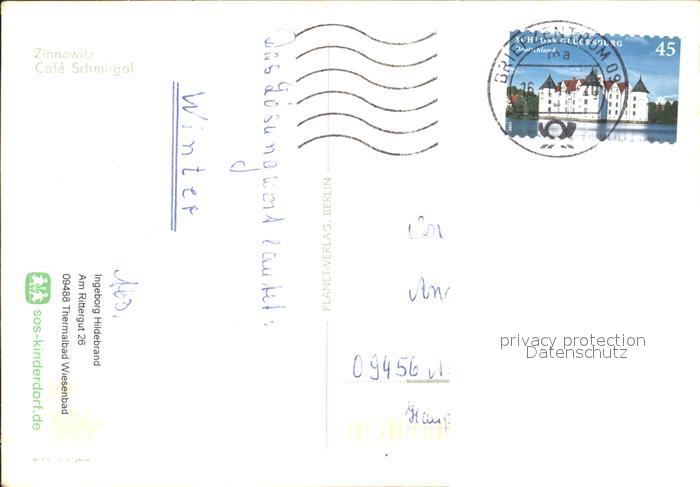 Zinnowitz
Café Schmirgal
Das Lösungwort lautet:
Winter
Abs.
Ingeborg Hildebrand
Am Rittergut 26
09488 Thermalbad Wiesenbad
sos-kinderdorf.de
PLANET-VERLAG, BERLIN
SCHLOSS GLÜCKSBURG
Deutschland
45
BRIEFZENTRUM 09
ma
16
An
09456
privacy protection
Datenschutz